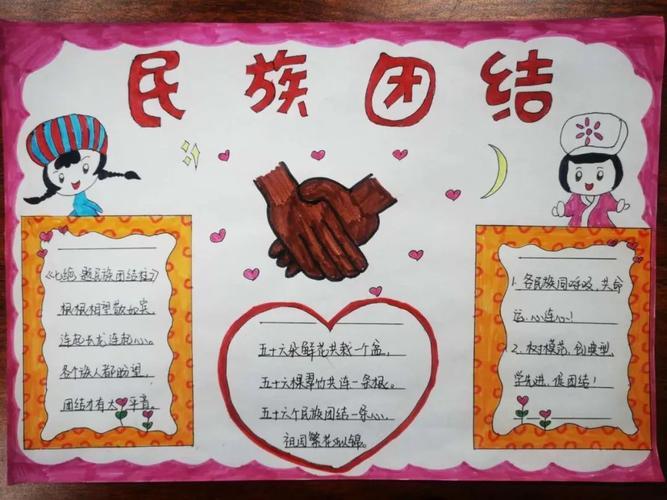 民族团结
《七绝·题民族团结柱》
根根相望敬如宾,
连起长龙连起心。
各个族人都盼望,
团结才有太平音。
五十六朵鲜花共栽一个盆,
五十六棵翠竹共连一条根。
五十六个民族团结一条心,
祖国繁花似锦。
1. 各民族同呼吸、共命
运、心连心!
2. 树模范、创典型、
学先进、促团结!